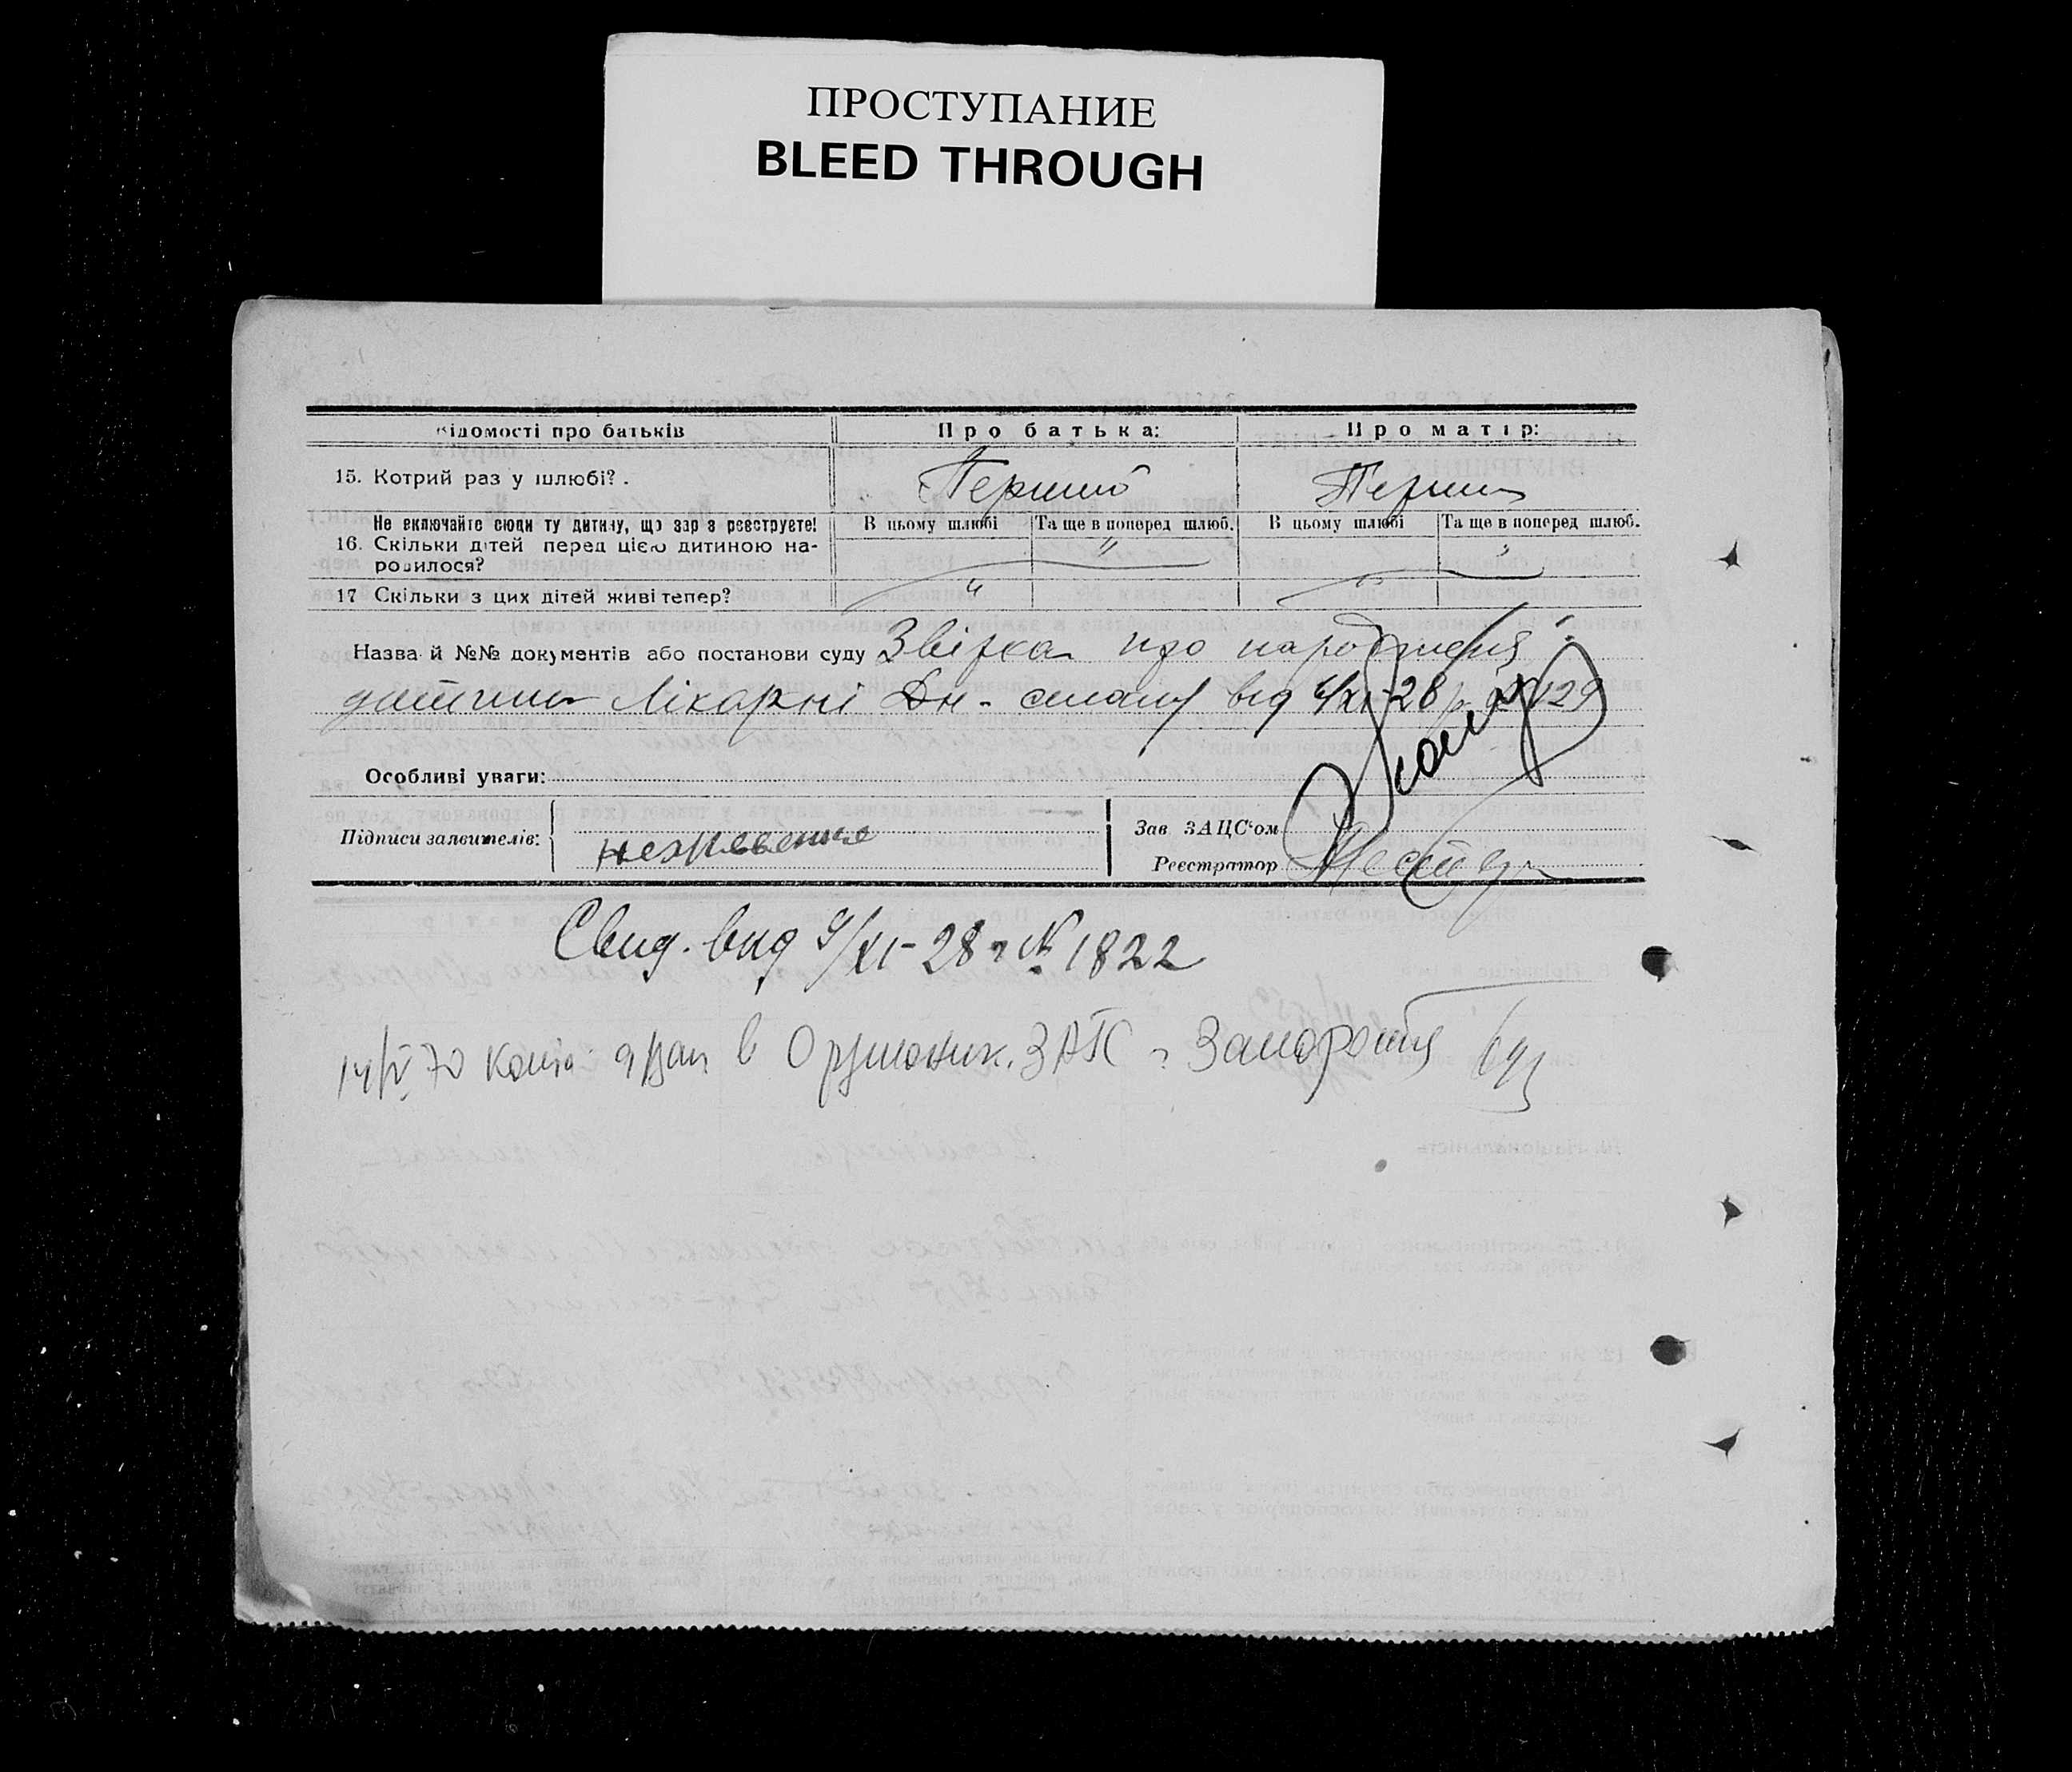 ПРОСТУПАНИЕ
BLEED THROUGH
Відомості про батьків
Про батька:
Про матір:
15. Котрий раз у шлюбі?.
Перший
Не включайте сюди ту дитину, що зараз реєструєте!
В цьому шлюбі
Та ще в поперед шлюб.
В цьому шлюбі
Та ще в поперед шлюб.
16. Скільки дітей перед цією дитиною на-
родилося?
"
"
17 Скільки з цих дітей живі тепер?
"
"
Назва й №№ документів або постанови суду Звірка про народження
дитини Лікарні Дн. від /XI-28 р. 129
Особливі уваги:
Підписи заявителів:
Зав ЗАЦС'ом
Реєстратор
Свид. вид 9/XI-28 г № 1822
14/IV 70 в ЗАГС г Запорожья